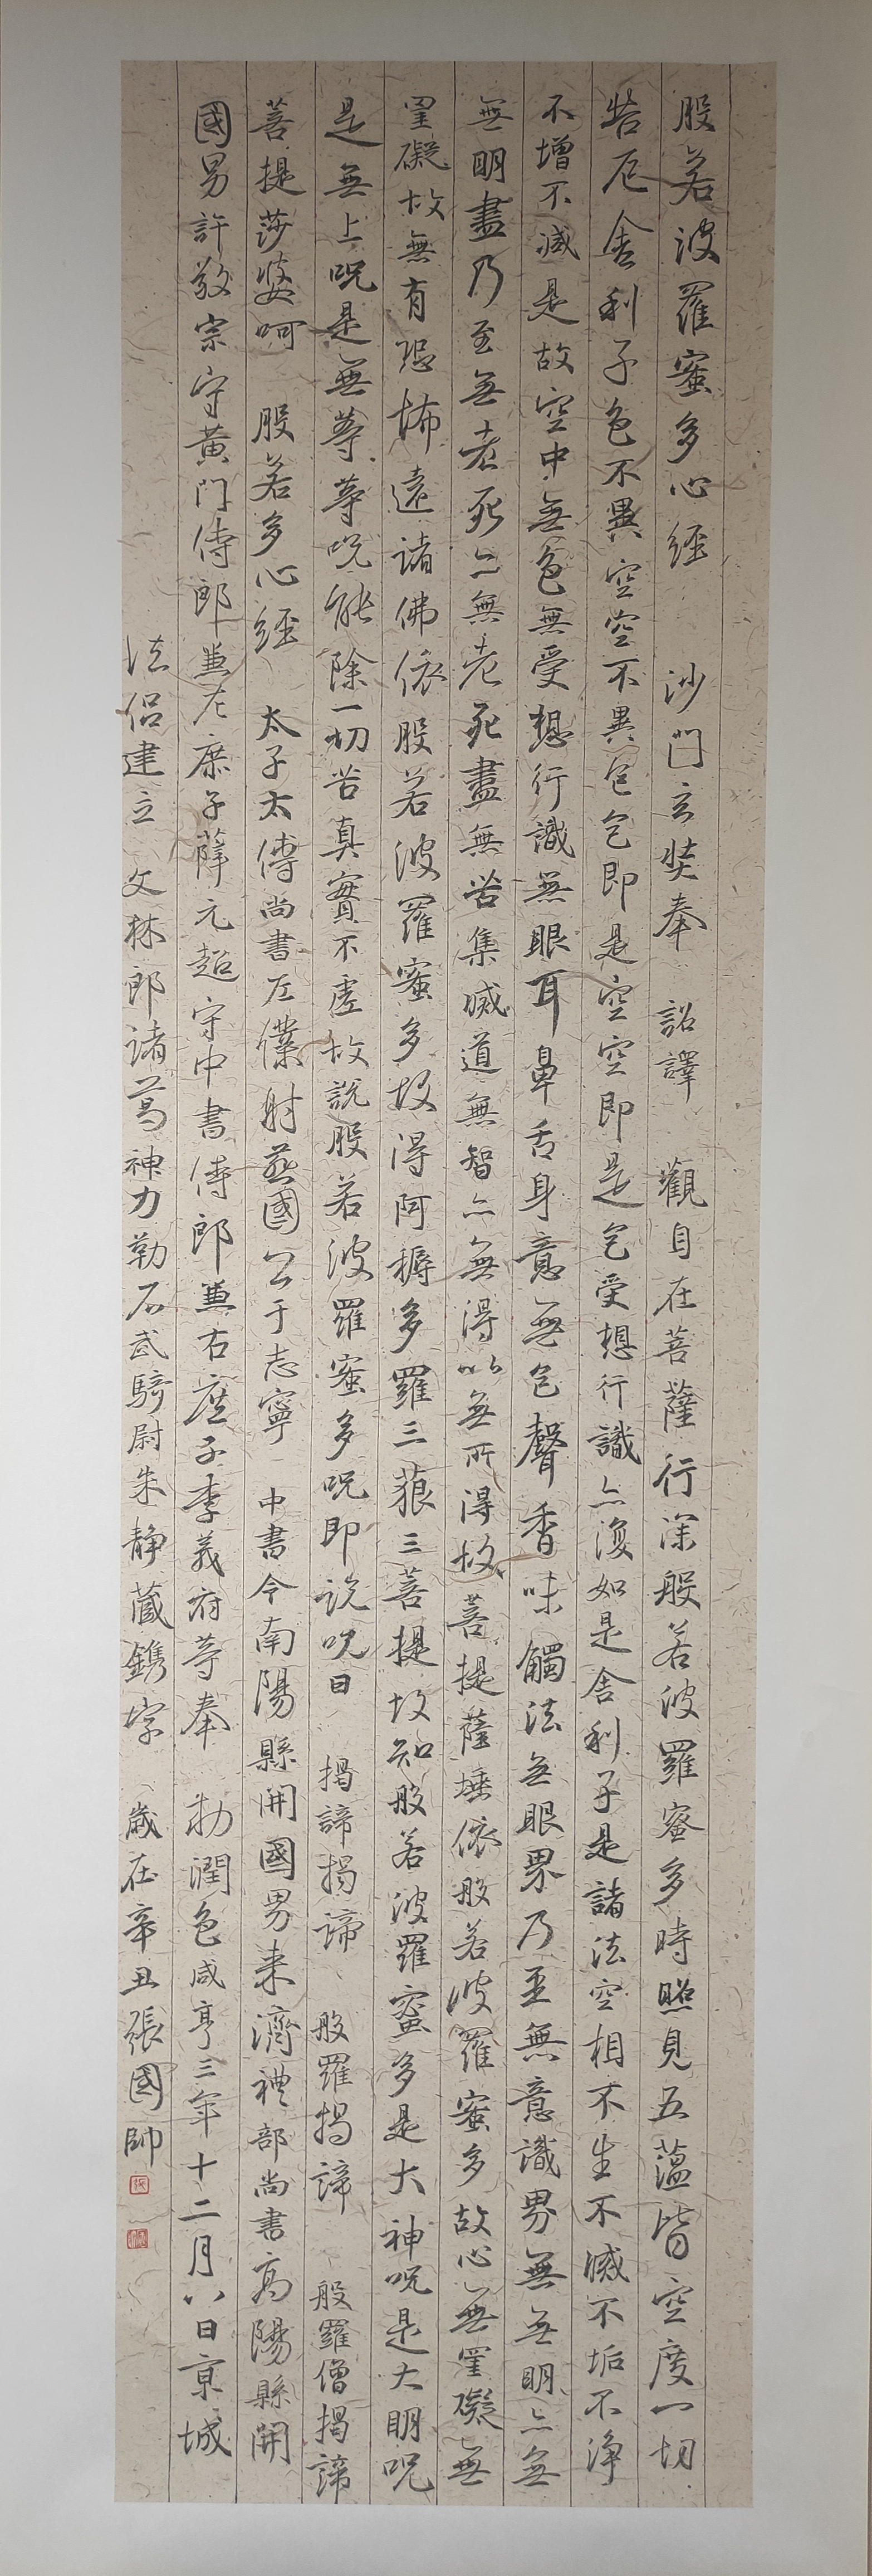 般若波羅蜜多心經 沙門玄奘奉 詔譯 觀自在菩薩行深般若波羅蜜多時照見五蘊皆空度一切
苦厄舍利子色不異空空不異色色即是空空即是色受想行識亦復如是舍利子是諸法空相不生不滅不垢不淨
不增不減是故空中無色無受想行識無眼耳鼻舌身意無色聲香味觸法無眼界乃至無意識界無無明亦無
無明盡乃至無老死亦無老死盡無苦集滅道無智亦無得以無所得故菩提薩埵依般若波羅蜜多故心無罣礙無
罣礙故無有恐怖遠諸佛依般若波羅蜜多故得阿耨多羅三藐三菩提故知般若波羅蜜多是大神咒是大明咒
是無上咒是無等等咒能除一切苦真實不虛故說般若波羅蜜多咒即說咒曰 揭諦揭諦 般羅揭諦 般羅僧揭諦
菩提莎婆呵 般若多心經 太子太傅尚書左僕射燕國公于志寧 中書令南陽縣開國男来濟禮部尚書高陽縣開
國男許敬宗守黃門侍郎兼左庶子薛元超守中書侍郎兼右庶子李義府等奉 勅潤色咸亨三年十二月八日京城
法侶建立 文林郎諸葛神力勒石武騎尉朱静藏鐫字 歲在辛丑張國帥